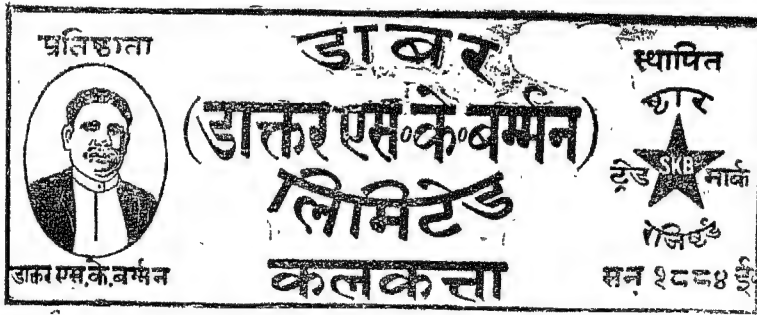 प्रतिष्ठाता
डाक्तर एस.के.बर्म्मन
डाबर
(डाक्तर एस॰के॰बर्म्मन)
लिमिटेड
कलकत्ता
स्थापित
ष्टार
SKB
ट्रेड मार्क
रेजिष्टर्ड
सन १८८४ ई